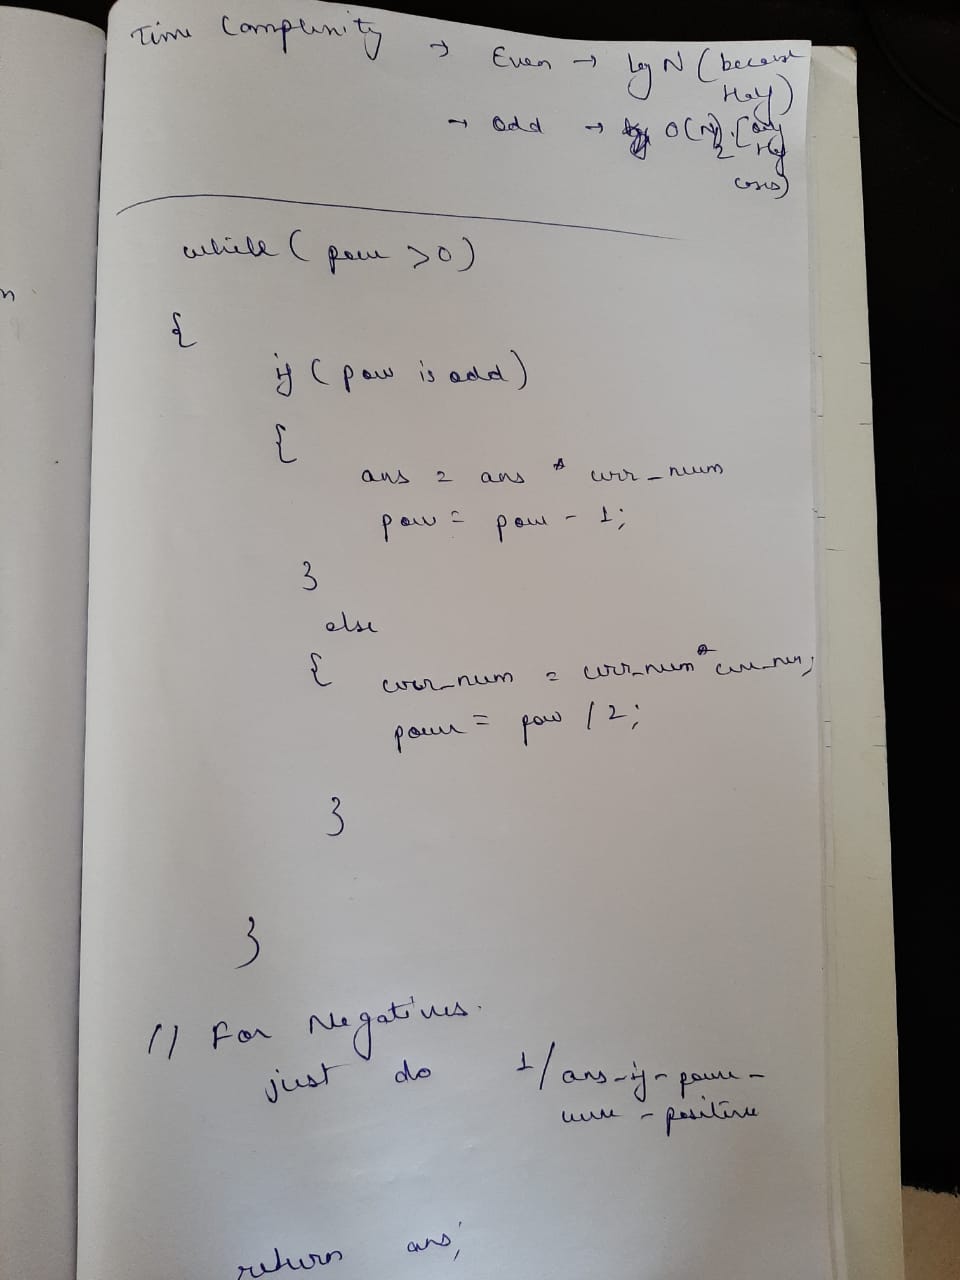 Time Complexity → Even → log N (because
Half)
→ odd → O(N/2) (only
Half
cases)
while (pow > 0)
{
if (pow is odd)
{
ans = ans * curr_num
pow = pow - 1;
}
else
{ curr_num = curr_num * curr_num;
pow = pow / 2;
}
}
// For Negatives.
just do 1/ans-if-power-
were-positive
return ans;
n